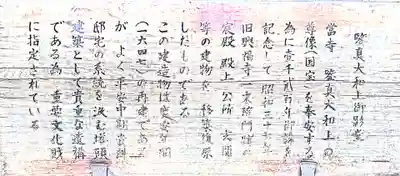 鑒真大和上御影堂
当寺 鑒真大和上の
尊像(国宝)を奉安する
為に壱千弐百年御諱を
記念して 昭和三十七年
旧興福寺 一乗院門跡の
宸殿 殿上 公所 玄関
等の建物を 移築復原
したものである
この建造物は慶安年間
(一六四七)の再建であ
が よく 平安中期
邸宅の系統を汲む
建築として貴重な遺構
である為 重要文化財
に指定されている